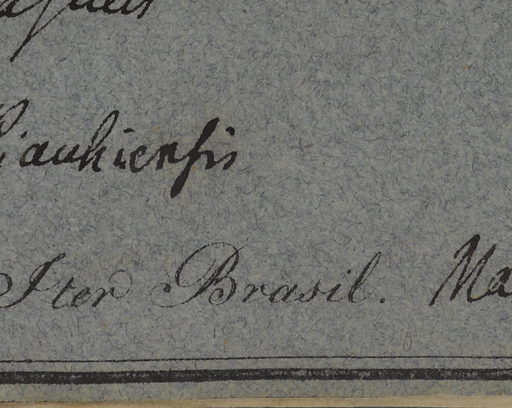 iauhiensis
Iter Brasil. Ma